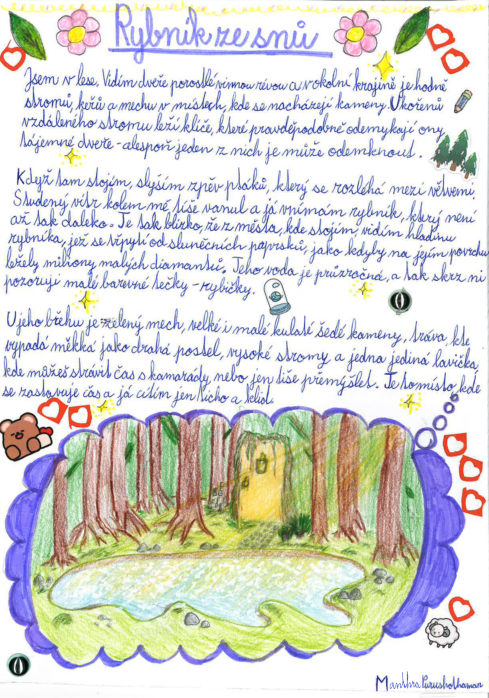 Rybník ze snů
Jsem v lese. Vidím dveře porostlé vinnou révou a v okolní krajině je hodně
stromů, keřů a mechu v místech, kde se nacházejí kameny. U kořenů
vzdáleného stromu leží klíče, které pravděpodobně odemykají ony
tajemné dveře - alespoň jeden z nich je může odemknout.
Když tam stojím, slyším zpěv ptáků, který se rozléhá mezi větvemi.
Studený vítr kolem mě tiše vanul a já vnímám rybník, který není
až tak daleko. Je tak blízko, že z místa, kde stojím, vidím hladinu
rybníka, jež se třpytí od slunečních paprsků, jako kdyby na jejím povrchu
ležely miliony malých diamantů. Jeho voda je průzračná, a tak skrz ni
pozoruji malé barevné tečky - rybičky.
U jeho břehu je zelený mech, velké i malé kulaté šedé kameny, tráva, kte
vypadá měkká jako drahá postel, vysoké stromy a jedna jediná lavička,
kde můžeš strávit čas s kamarády, nebo jen tiše přemýšlet. Je to místo, kde
se zastavuje čas a já cítím jen ticho a klid.
Manthra Purushothaman